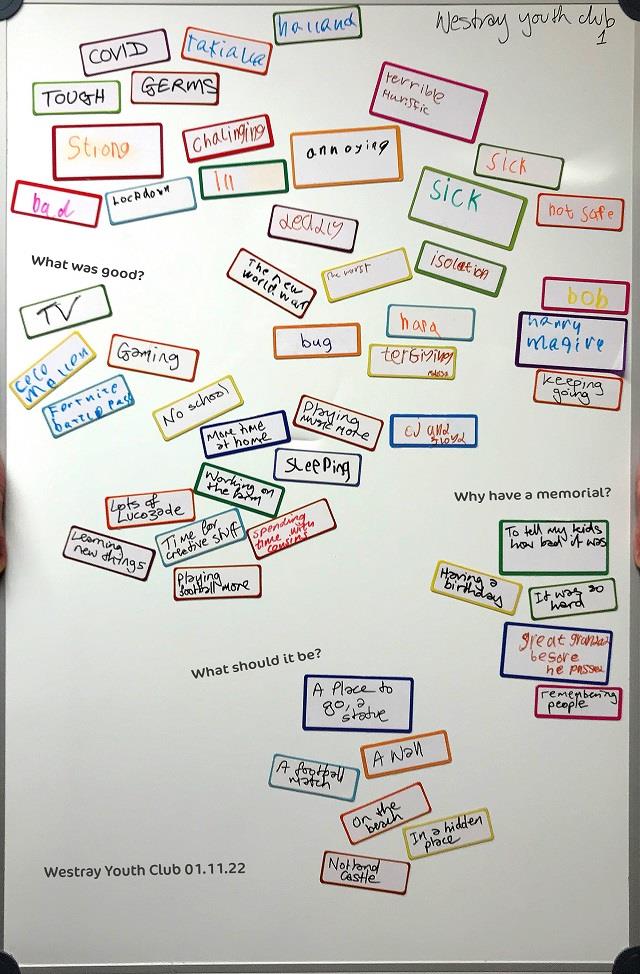 Westray youth club
1
haıland
COVID
TOUGH
GERMS
terrible
Huristic
Strong
chalinging
annoying
Sick
bad
Lockdown
Ill
Sick
not safe
deadly
What was good?
The new
world war
The worst
isolation
TV
bob
harry
magire
bug
hard
Gaming
coco
mellon
keeping
going
Fortnite
battle pass
No school
More time
at home
Playing
music more
Sleeping
Working on
the farm
Why have a memorial?
Lots of
Lucozade
Time for
creative stuff
Spending
time with
cousins
Learning
new things
Playing
football more
To tell my kids
how bad it was
Having a
birthday
It was so
hard
great grandad
besore
he passed
remembering
people
What should it be?
A Place to
go, a
statue
A Wall
A football
match
On the
beach
In a hidden
place
Notland
Castle
Westray Youth Club 01.11.22